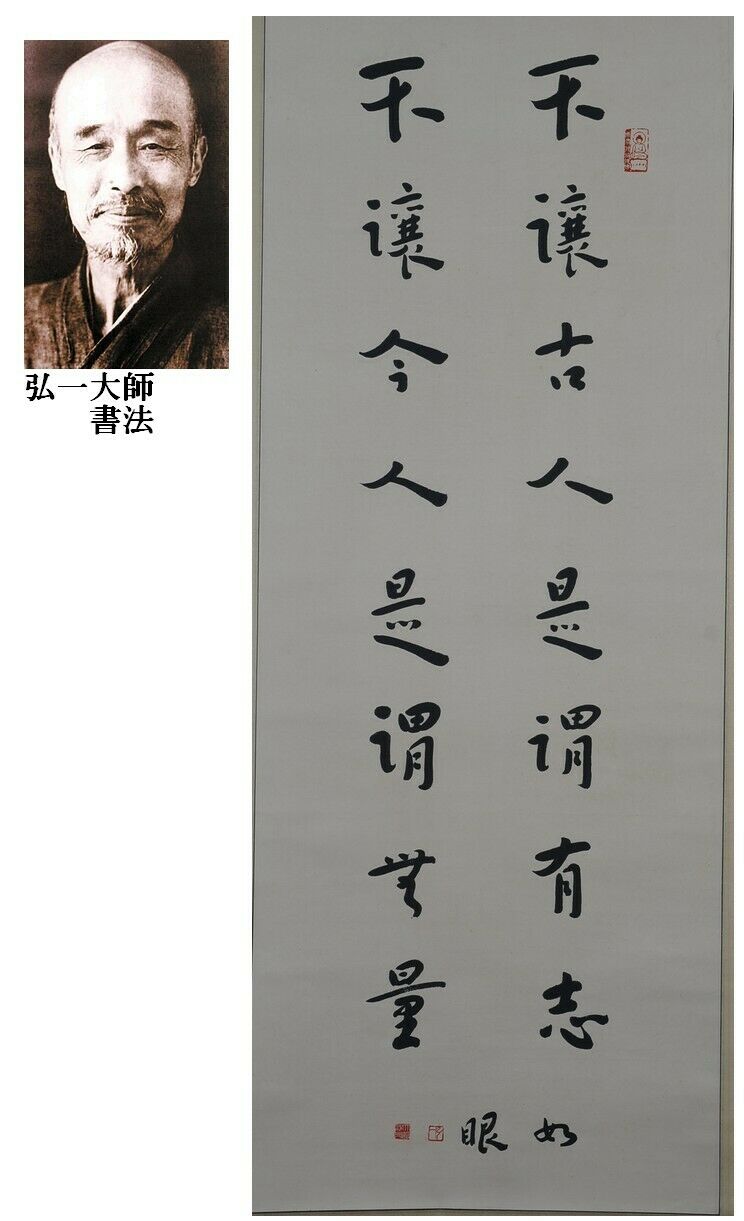 弘一大師
書法
不讓古人是谓有志
不讓今人是谓無量
如眼